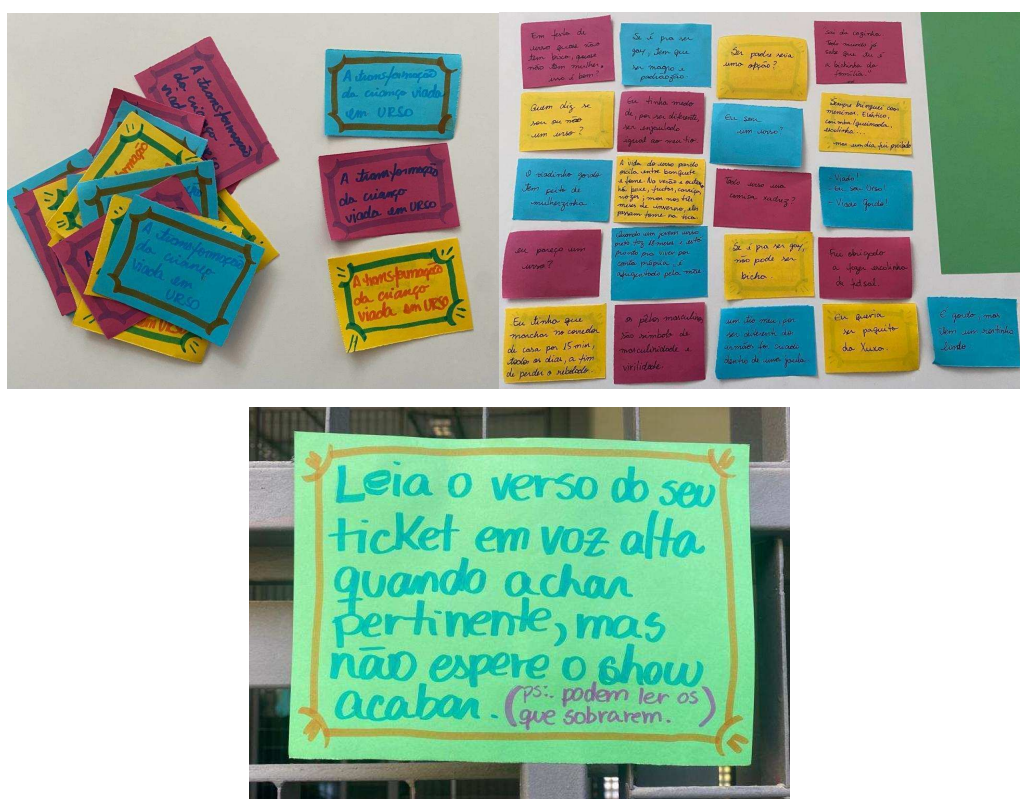 A transformação
da criança
viada em
URSO
A transformação
da criança viada
em URSO
A transformação
da criança
viada em URSO
A transformação
da criança
viada em URSO
A transformação
da criança
viada em
URSO
Em festa de
urso quase não
tem bico, quase
não tem mulher,
isso é bom?
Se é pra ser
gay, tem que
ser magro e
padrãozão.
Ser padre seria
uma opção?
Todo mundo já
sabe que tu é
a bichinha da
família."
Quem diz se
sou ou não
um urso?
Eu tinha medo
de, por ser diferente,
ser enjaulado
igual ao meu tio.
Eu sou
um urso?
Sempre brinquei com
meninas. Elástico,
escolinha...
mas um dia fui
O viadinho gordo
tem peito de
mulherzinha
A vida do urso pardo
oscila entre banquete
e fome. No verão e outono,
há peixe, frutas,
mas nos três
meses de inverno, eles
passam fome na toca.
Todo urso usa
camisa xadrez?
- Viado!
- Eu sou Urso!
- Viado Gordo!
eu pareço um
urso?
Quando um jovem urso
faz 18 meses e está
pronto pra viver por
conta própria, é
pela mãe
Se é pra ser gay,
não pode ser
bicha.
Fui obrigado
a fazer escolinha
de futsal.
Eu tinha que
marchar no corredor
de casa por 15 min,
todos os dias, a fim
de perder o rebolado.
os pêlos masculinos
são símbolo de
masculinidade e
virilidade.
um tio meu, por
ser diferente dos
irmãos foi criado
dentro de uma jaula.
Eu queria
ser paquito
da Xuxa.
É gordo mas
tem um rostinho
lindo
Leia o verso do seu
ticket em voz alta
quando achar
pertinente, mas
não espere o show
acabar. (ps:. podem ler os
que sobrarem.)